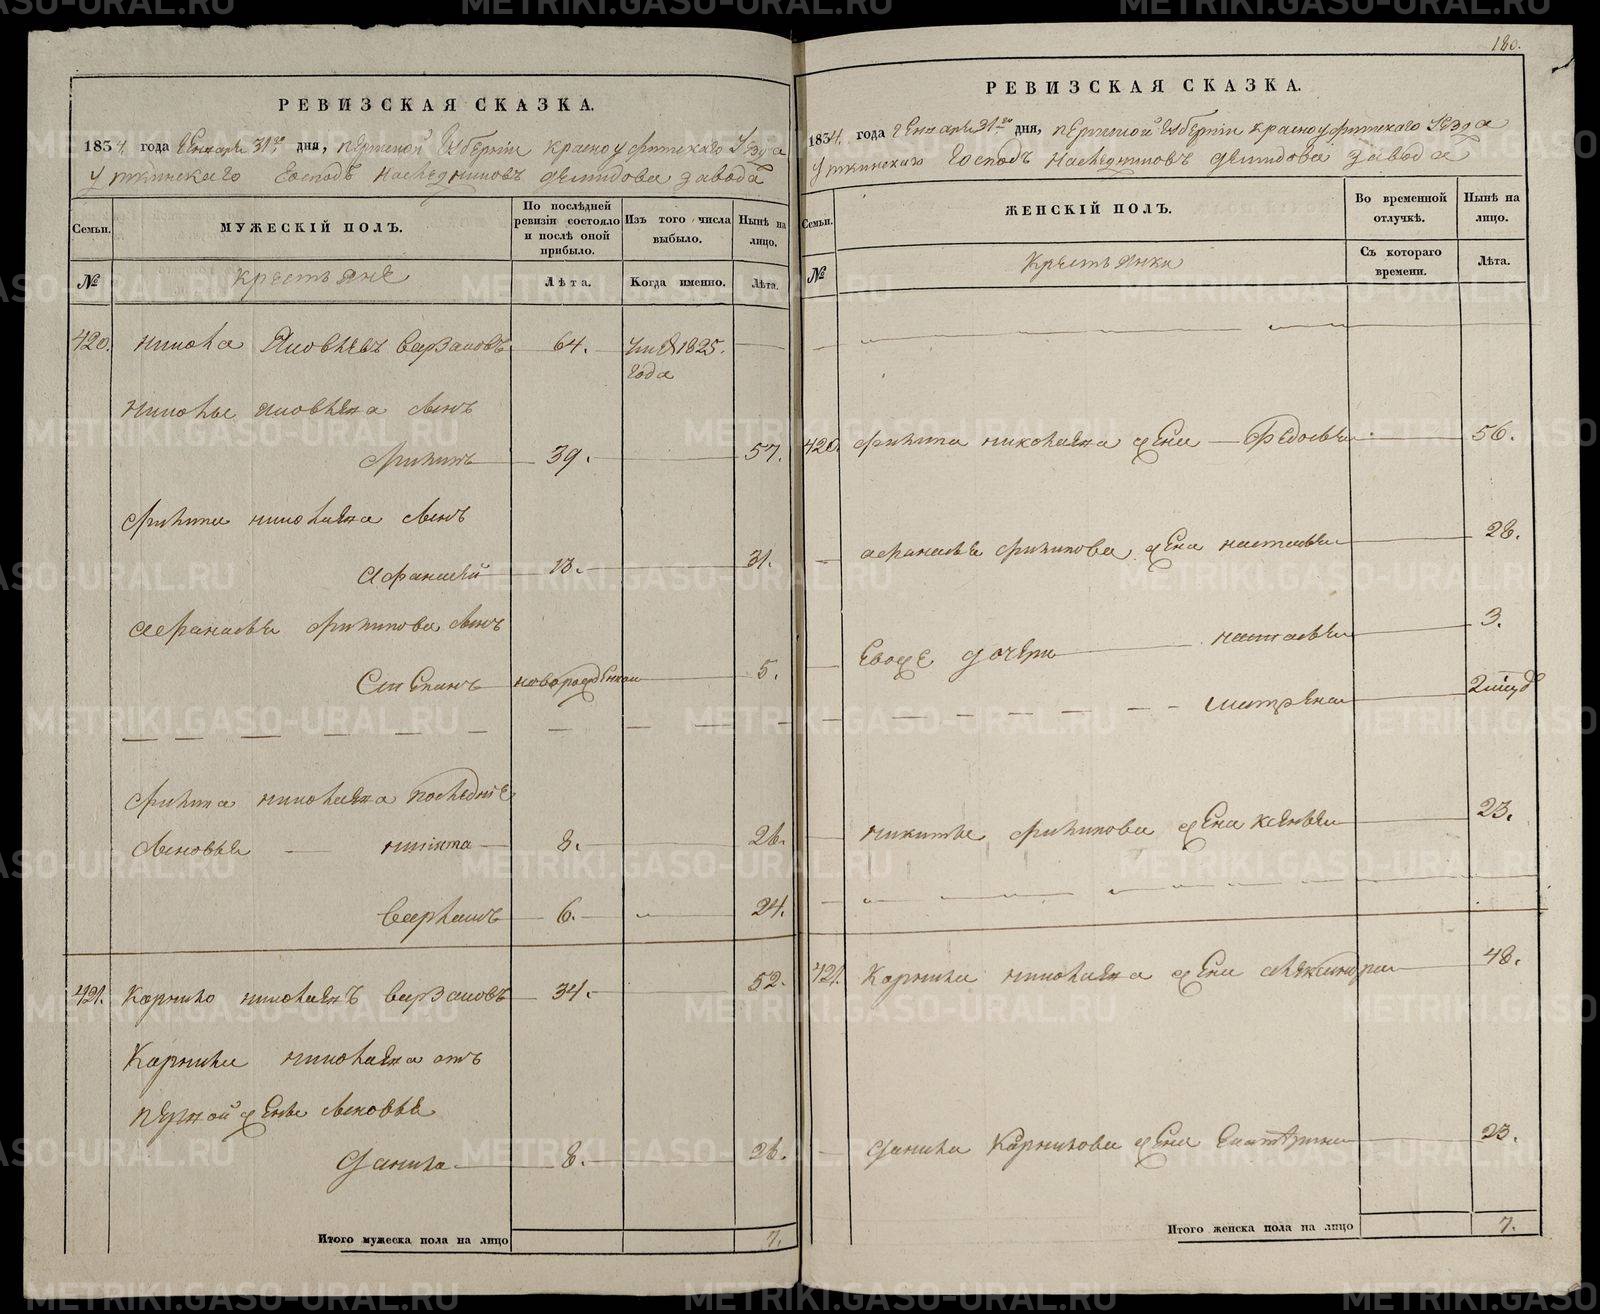 180.
РЕВИЗСКАЯ СКАЗКА.
1834. года Генваря 31го дня, Пермской Губернии Красноуфимского Уезда
Уткинскаго Господъ Наследниковъ Демидова завода
Семьи.
МУЖЕСКІЙ ПОЛЪ.
По послѣдней ревизіи состояло и послѣ оной прибыло.
Изъ того числа выбыло.
Нынѣ на лицо.
№
Крестьяне
Лѣта.
Когда именно.
Лѣта.
420. Никола Яковлевъ 64. 1825. года
Николы Яковлева сынъ
Филипъ 39. 57.
Филипа Николаева сынъ
Афанасей 13. 31.
Афанасья Филипова сынъ
Степанъ новорожденной 5.
Филипа Николаева последние
сыновья Никита 8. 26.
Варламъ 6. 24.
421. Корнило Николаевъ 34. 52.
Корнила Николаева отъ
первой жены сыновья
Данила 8. 26.
Итого мужеска пола на лицо 7.
РЕВИЗСКАЯ СКАЗКА.
1834. года Генваря 31го дня, Пермской Губернии Красноуфимскаго Уезда
Уткинскаго Господъ Наследниковъ Демидова завода
Семьи.
ЖЕНСКІЙ ПОЛЪ.
Во временной отлучкѣ.
Нынѣ на лицо.
№
Крестьянки
Съ котораго времени.
Лѣта.
420. Филипа Николаева жена Федосья 56.
Афанасья Филипова жена Настасья 28.
Евоже дочери Настасья 3.
Матрена
Никиты Филипова жена Ксенья 23.
421. Корнила Николаева жена Александра 48.
Данила Корнилова жена Екатерина 23.
Итого женска пола на лицо 7.
METRIKI.GASO-URAL.RU